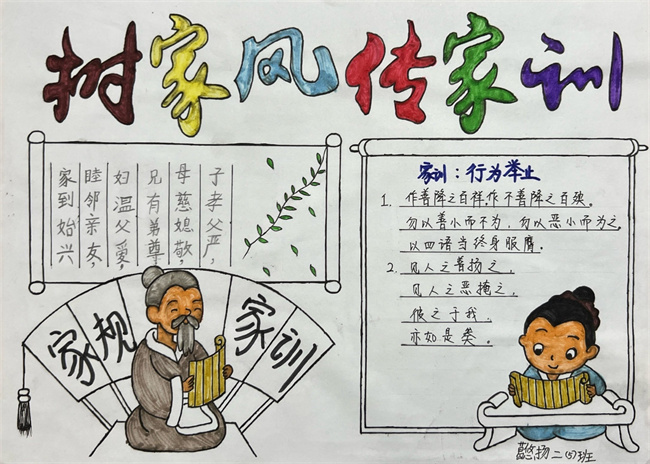 树家风传家训
子孝父严，
母慈媳敬，
兄有弟尊
妇温父爱，
睦邻亲友，
家到始兴
家规 家训
家训：行为举业
1. 作善降之百祥,作不善降之百殃。
勿以善小而不为，勿以恶小而为之
以四语当终身服膺。
2. 凡人之善扬之，
凡人之恶掩之，
彼之于我，
亦如是类。
扬 二(5)班